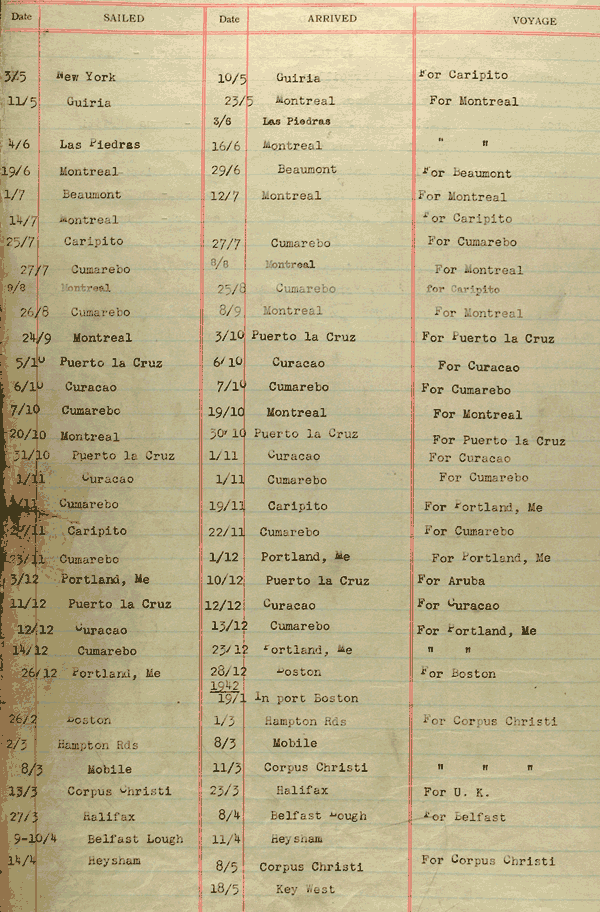 Date SAILED Date ARRIVED VOYAGE
3/5 New York 10/5 Guiria For Caripito
11/5 Guiria 23/5 Montreal For Montreal
3/6 Las Piedras
4/6 Las Piedras 16/6 Montreal " "
19/6 Montreal 29/6 Beaumont For Beaumont
1/7 Beaumont 12/7 Montreal For Montreal
14/7 Montreal For Caripito
25/7 Caripito 27/7 Cumarebo For Cumarebo
27/7 Cumarebo 8/8 Montreal For Montreal
9/8 Montreal 25/8 Cumarebo for Caripito
26/8 Cumarebo 8/9 Montreal For Montreal
24/9 Montreal 3/10 Puerto la Cruz For Puerto la Cruz
5/10 Puerto la Cruz 6/10 Curacao For Curacao
6/10 Curacao 7/10 Cumarebo For Cumarebo
7/10 Cumarebo 19/10 Montreal For Montreal
20/10 Montreal 30/10 Puerto la Cruz For Puerto la Cruz
31/10 Puerto la Cruz 1/11 Curacao For Curacao
1/11 Curacao 1/11 Cumarebo For Cumarebo
/11 Cumarebo 19/11 Caripito For Portland, Me
/11 Caripito 22/11 Cumarebo For Cumarebo
23/11 Cumarebo 1/12 Portland, Me For Portland, Me
3/12 Portland, Me 10/12 Puerto la Cruz For Aruba
11/12 Puerto la Cruz 12/12 Curacao For Curacao
12/12 Curacao 13/12 Cumarebo For Portland, Me
14/12 Cumarebo 23/12 Portland, Me " "
26/12 Portland, Me 28/12 Boston For Boston
1942
19/1 In port Boston
26/2 Boston 1/3 Hampton Rds For Corpus Christi
2/3 Hampton Rds 8/3 Mobile
8/3 Mobile 11/3 Corpus Christi " " "
13/3 Corpus Christi 23/3 Halifax For U. K.
27/3 Halifax 8/4 Belfast Lough For Belfast
9-10/4 Belfast Lough 11/4 Heysham
14/4 Heysham 8/5 Corpus Christi For Corpus Christi
18/5 Key West